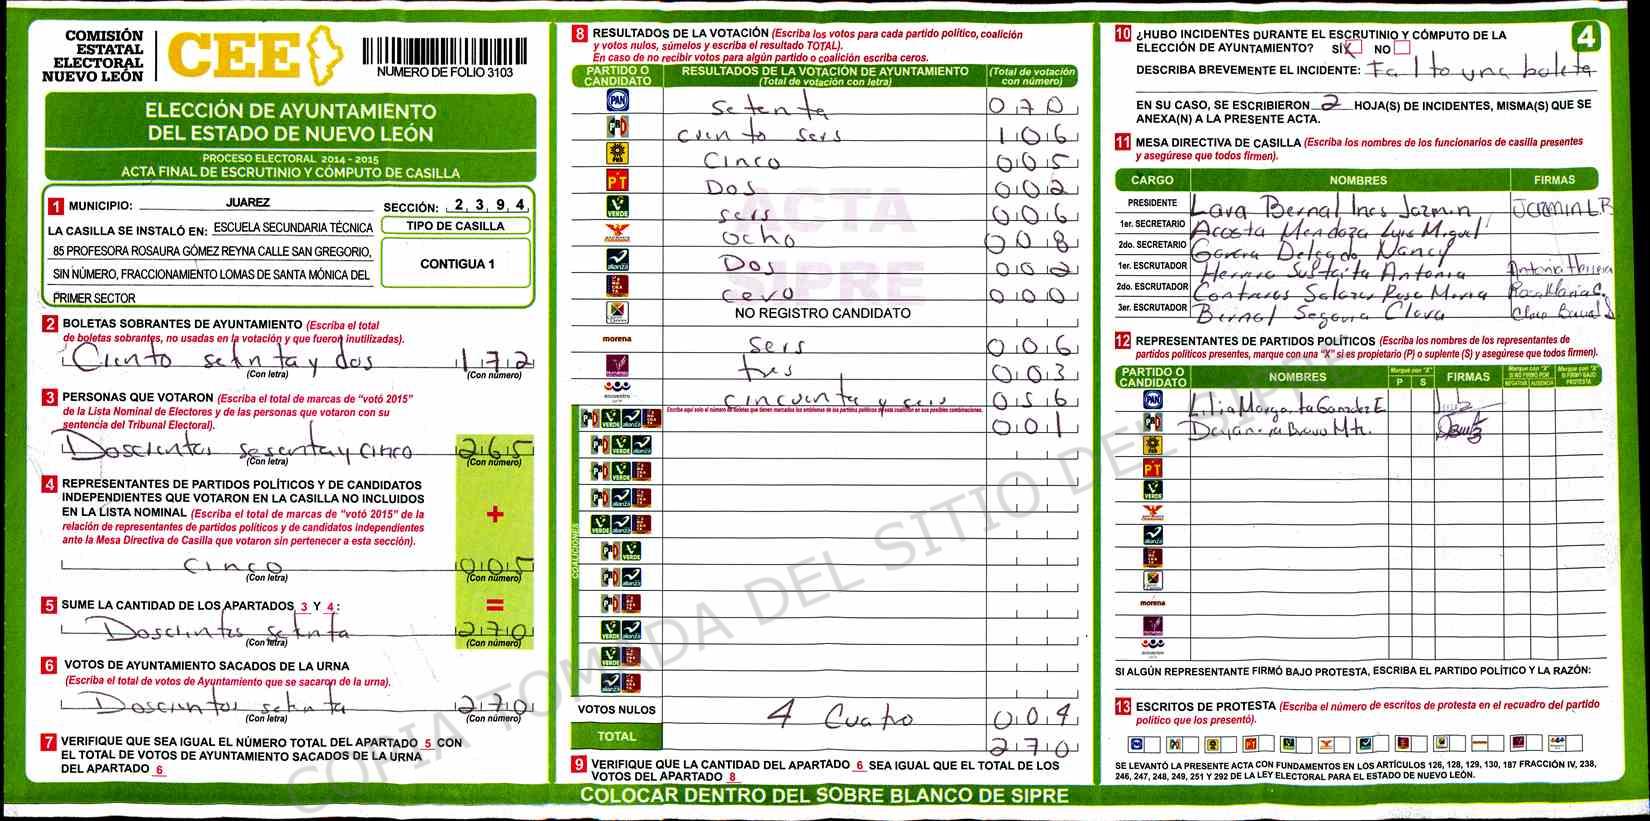 COMISIÓN
ESTATAL
ELECTORAL
NUEVO LEÓN
CEE
NÚMERO DE FOLIO 3103
ELECCIÓN DE AYUNTAMIENTO
DEL ESTADO DE NUEVO LEÓN
PROCESO ELECTORAL 2014 - 2015
ACTA FINAL DE ESCRUTINIO Y CÓMPUTO DE CASILLA
1 MUNICIPIO: JUAREZ
SECCIÓN: 2,3,9,4
LA CASILLA SE INSTALÓ EN: ESCUELA SECUNDARIA TÉCNICA
85 PROFESORA ROSAURA GÓMEZ REYNA CALLE SAN GREGORIO,
SIN NÚMERO, FRACCIONAMIENTO LOMAS DE SANTA MÓNICA DEL
PRIMER SECTOR
TIPO DE CASILLA
CONTIGUA 1
2 BOLETAS SOBRANTES DE AYUNTAMIENTO (Escriba el total
de boletas sobrantes, no usadas en la votación y que fueron inutilizadas).
Ciento setenta y dos 172
(Con letra) (Con número)
3 PERSONAS QUE VOTARON (Escriba el total de marcas de “votó 2015”
de la Lista Nominal de Electores y de las personas que votaron con su
sentencia del Tribunal Electoral).
Doscientos sesenta y cinco 265
(Con letra) (Con número)
4 REPRESENTANTES DE PARTIDOS POLÍTICOS Y DE CANDIDATOS
INDEPENDIENTES QUE VOTARON EN LA CASILLA NO INCLUIDOS
EN LA LISTA NOMINAL (Escriba el total de marcas de “votó 2015” de la
relación de representantes de partidos políticos y de candidatos independientes
ante la Mesa Directiva de Casilla que votaron sin pertenecer a esta sección).
+
Cinco 005
(Con letra) (Con número)
5 SUME LA CANTIDAD DE LOS APARTADOS 3 Y 4 :
=
Doscientos setenta 270
(Con letra) (Con número)
6 VOTOS DE AYUNTAMIENTO SACADOS DE LA URNA
(Escriba el total de votos de Ayuntamiento que se sacaron de la urna).
Doscientos setenta 270
(Con letra) (Con número)
7 VERIFIQUE QUE SEA IGUAL EL NÚMERO TOTAL DEL APARTADO 5 CON
EL TOTAL DE VOTOS DE AYUNTAMIENTO SACADOS DE LA URNA
DEL APARTADO 6
8 RESULTADOS DE LA VOTACIÓN (Escriba los votos para cada partido político, coalición
y votos nulos, súmelos y escriba el resultado TOTAL).
En caso de no recibir votos para algún partido o coalición escriba ceros.
PARTIDO O
CANDIDATO
RESULTADOS DE LA VOTACIÓN DE AYUNTAMIENTO
(Total de votación con letra)
(Total de votación
con número)
PAN setenta 070
PRD ciento seis 106
PRD Cinco 005
PT Dos 002
VERDE seis 006
ocho 008
alianza Dos 002
cero 000
NO REGISTRO CANDIDATO
morena seis 006
tres 003
encuentro cincuenta y seis 056
Escriba aquí solo el número de boletas que tienen marcados los emblemas de los partidos políticos de esta coalición en sus posibles combinaciones.
001
COALICIONES
VOTOS NULOS 4 Cuatro 004
TOTAL 270
9 VERIFIQUE QUE LA CANTIDAD DEL APARTADO 6 SEA IGUAL QUE EL TOTAL DE LOS
VOTOS DEL APARTADO 8
COLOCAR DENTRO DEL SOBRE BLANCO DE SIPRE
ACTA
SIPRE
COPIA TOMADA DEL SITIO DEL SIPRE
4
10 ¿HUBO INCIDENTES DURANTE EL ESCRUTINIO Y CÓMPUTO DE LA
ELECCIÓN DE AYUNTAMIENTO? SÍ X NO
DESCRIBA BREVEMENTE EL INCIDENTE: Falto una boleta
EN SU CASO, SE ESCRIBIERON 2 HOJA(S) DE INCIDENTES, MISMA(S) QUE SE
ANEXA(N) A LA PRESENTE ACTA.
11 MESA DIRECTIVA DE CASILLA (Escriba los nombres de los funcionarios de casilla presentes
y asegúrese que todos firmen).
CARGO NOMBRES FIRMAS
PRESIDENTE Lara Bernal Ines Jazmin
1er. SECRETARIO Acosta Mendoza Luis Miguel
2do. SECRETARIO Garcia Delgado Nancy
1er. ESCRUTADOR Herrera Sustaita Antonia Antonia Herrera
2do. ESCRUTADOR Contreras Salazar Rosa Maria Rosa Maria C.
3er. ESCRUTADOR Bernal Segovia Clara
12 REPRESENTANTES DE PARTIDOS POLÍTICOS (Escriba los nombres de los representantes de
partidos políticos presentes, marque con una “X” si es propietario (P) o suplente (S) y asegúrese que todos firmen).
PARTIDO O
CANDIDATO
NOMBRES
Marque con “X”
P S
FIRMAS
Marque con “X”
SI NO FIRMÓ POR
NEGATIVA AUSENCIA
Marque con “X”
SI FIRMÓ BAJO
PROTESTA
PAN Lilia Margarita Gonzalez E
Dayanara Bravo Mtz.
PT
VERDE
alianza
morena
SI ALGÚN REPRESENTANTE FIRMÓ BAJO PROTESTA, ESCRIBA EL PARTIDO POLÍTICO Y LA RAZÓN:
13 ESCRITOS DE PROTESTA (Escriba el número de escritos de protesta en el recuadro del partido
político que los presentó).
SE LEVANTÓ LA PRESENTE ACTA CON FUNDAMENTOS EN LOS ARTÍCULOS 126, 128, 129, 130, 187 FRACCIÓN IV, 238,
246, 247, 248, 249, 251 Y 292 DE LA LEY ELECTORAL PARA EL ESTADO DE NUEVO LEÓN.